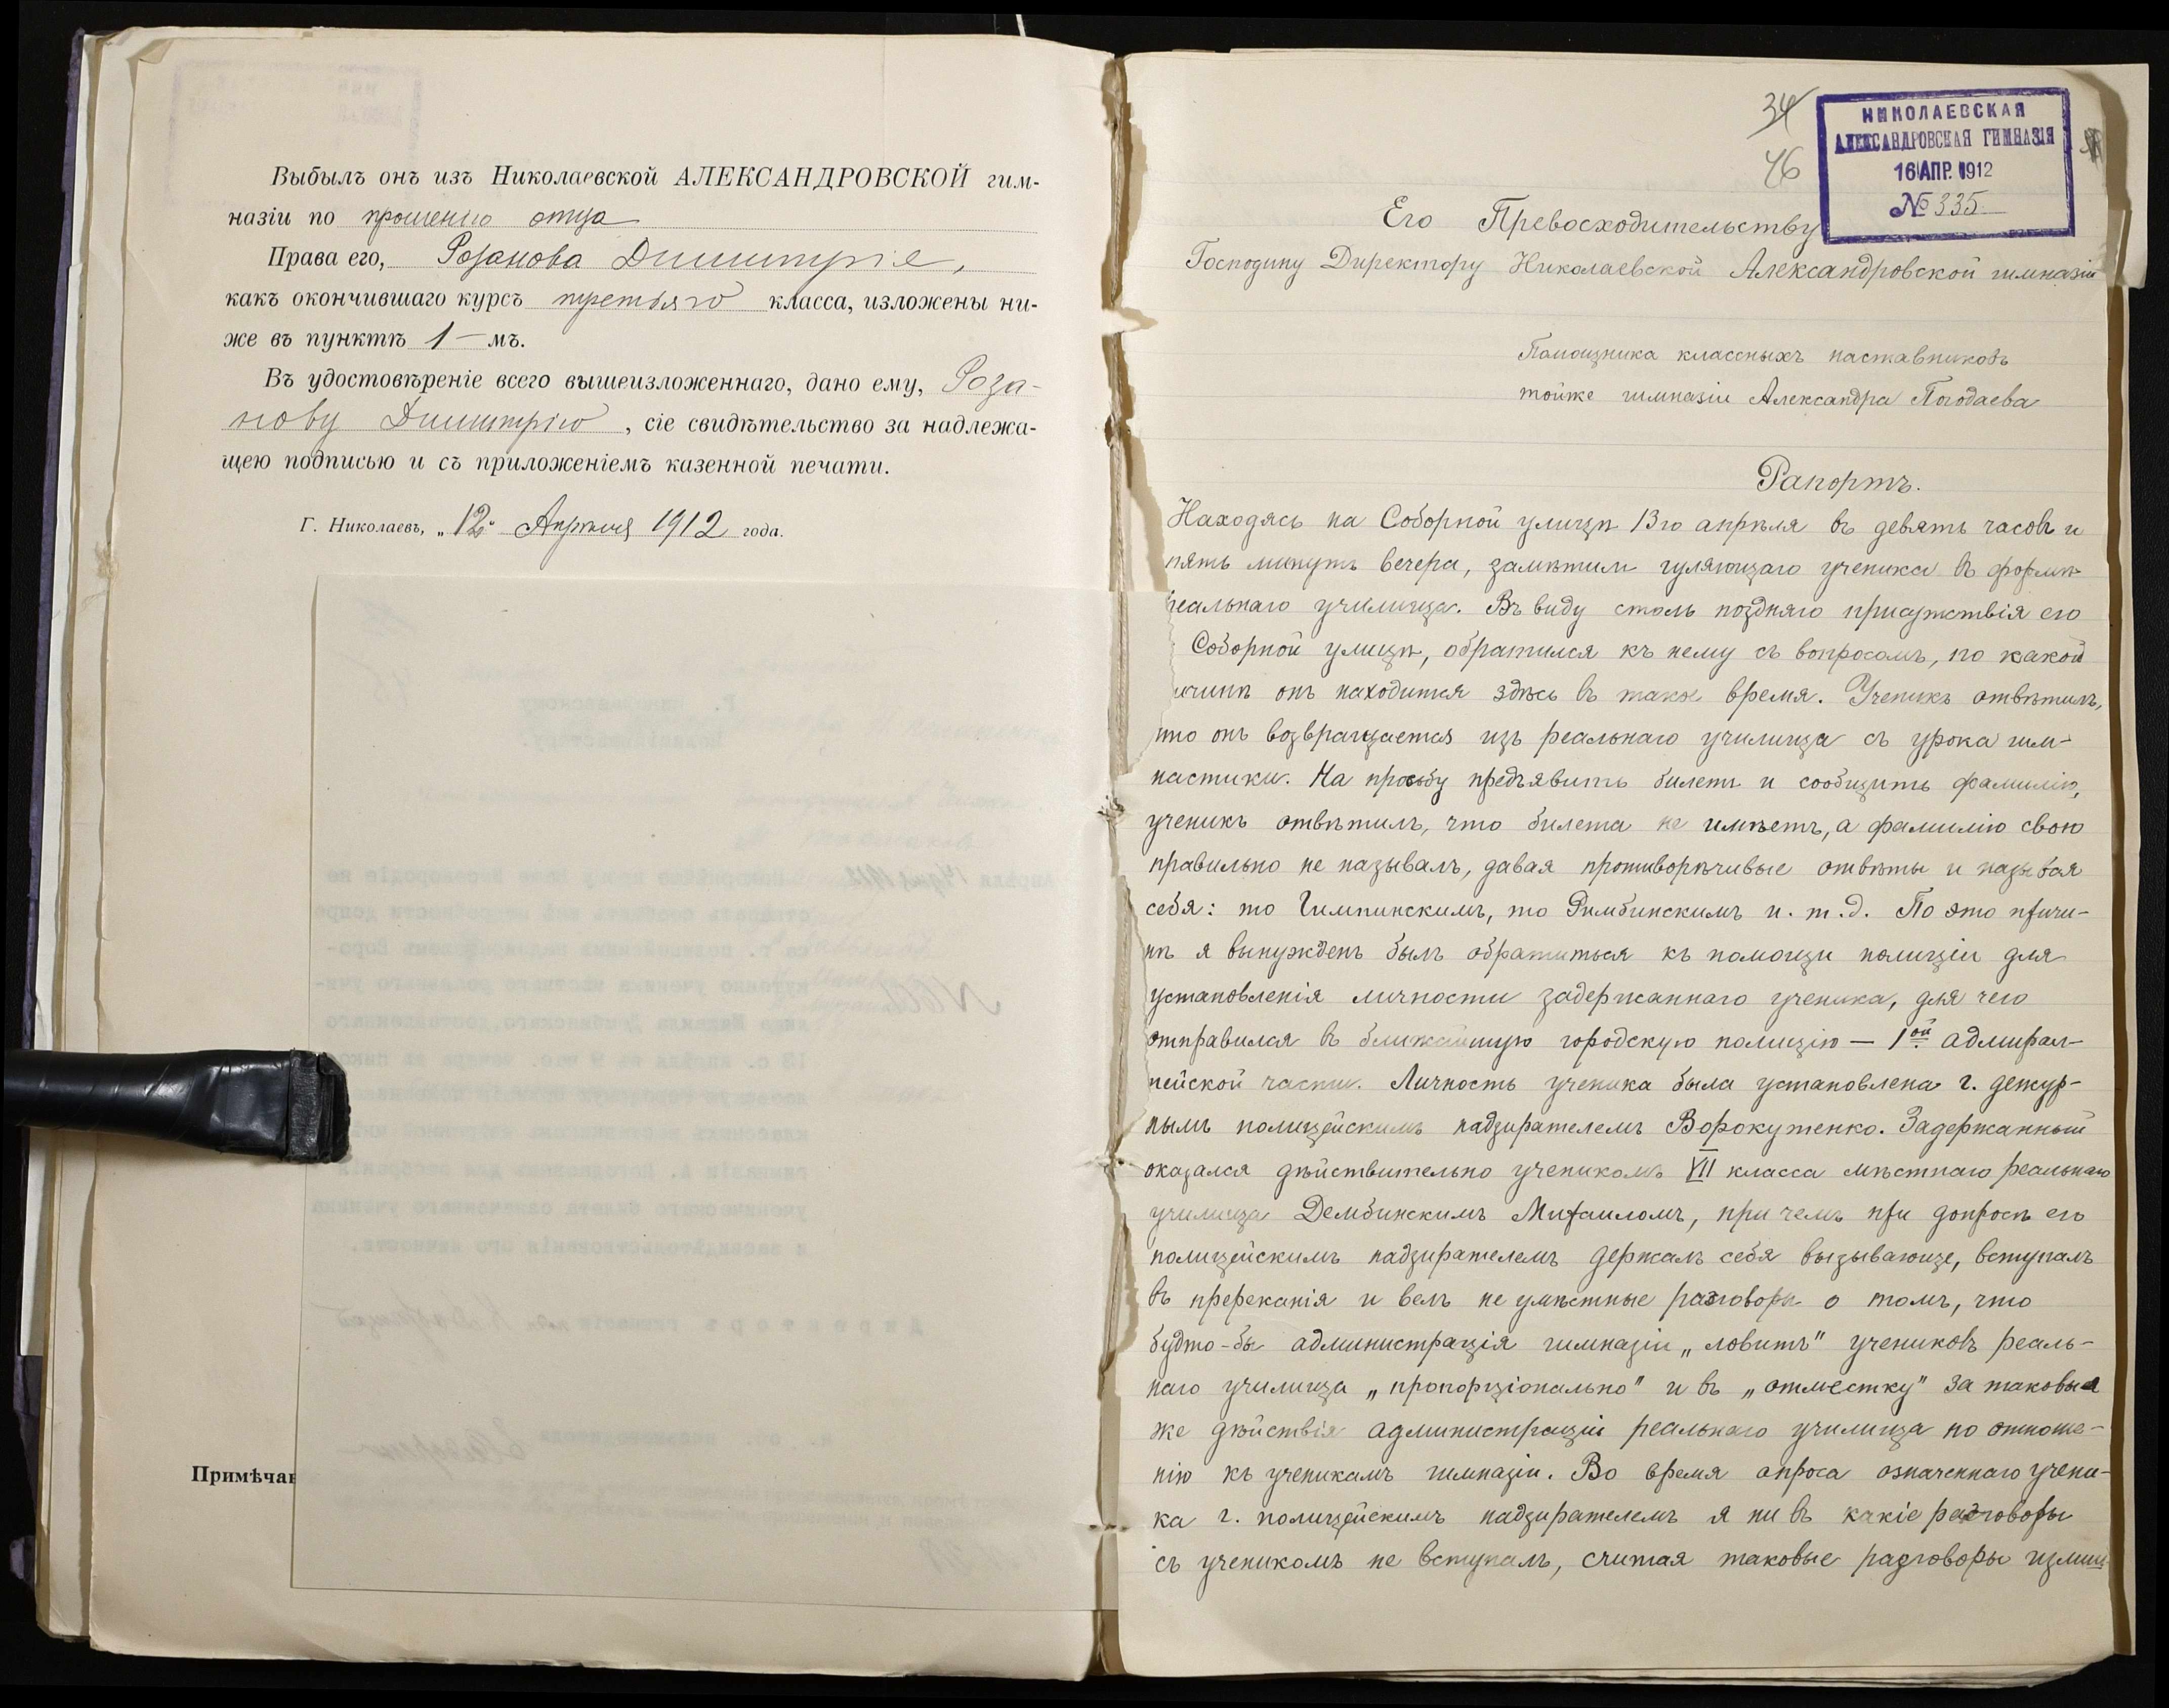 Выбылъ онъ изъ Николаевской АЛЕКСАНДРОВСКОЙ гим-
назіи по прошенію отца
Права его, Розанова Димитрія,
какъ окончившаго курсъ третьяго класса, изложены ни-
же въ пунктѣ 1-мъ.
Въ удостовѣреніе всего вышеизложеннаго, дано ему, Роза-
нову Димитрію, сіе свидѣтельство за надлежа-
щею подписью и съ приложеніемъ казенной печати.
Г. Николаевъ, „12" Апрѣля 1912 года.
Примѣчан
34
46
НИКОЛАЕВСКАЯ
АЛЕКСАНДРОВСКАЯ ГИМНАЗІЯ
16 АПР. 1912
№ 335
Его Превосходительству
Господину Директору Николаевской Александровской гимназіи
Помощника классныхъ наставниковъ
тойже гимназіи Александра Погодаева
Рапортъ.
Находясь на Соборной улицѣ 13го апрѣля въ девять часовъ и
пять минутъ вечера, замѣтилъ гуляющаго ученика въ формѣ
реальнаго училища. Въ виду столь поздняго присутствія его
Соборной улицѣ, обратился къ нему съ вопросомъ, по какой
ичинѣ онъ находится здѣсь въ такое время. Ученикъ отвѣтилъ,
что онъ возвращается изъ реальнаго училища съ урока гим-
настики. На просьбу предъявить билетъ и сообщить фамилію,
ученикъ отвѣтилъ, что билета не имѣетъ, а фамилію свою
правильно не называлъ, давая противорѣчивые отвѣты и называя
себя: то Гимпинскимъ, то Римбинскимъ и. т. д. По это причи-
нѣ я вынужденъ былъ обратиться къ помощи полиціи для
установленія личности задержаннаго ученика, для чего
отправился въ ближайшую городскую полицію — 1ой адмирал-
тейской части. Личность ученика была установлена г. дежур-
нымъ полицейскимъ надзирателемъ Ворокутенко. Задержанный
оказался дѣйствительно ученикомъ VII класса мѣстнаго реальнаго
училища Дембинскимъ Михаиломъ, при чемъ при допросѣ его
полицейскимъ надзирателемъ держалъ себя вызывающе, вступалъ
въ пререканія и велъ не умѣстные разговоры о томъ, что
будто-бы администрація гимназіи „ловитъ" учениковъ реаль-
наго училища „пропорціонально" и въ „отместку" за таковыя
же дѣйствія администраціи реальнаго училища по отноше-
нію къ ученикамъ гимназіи. Во время опроса означеннаго учени-
ка г. полицейскимъ надзирателемъ я ни въ какіе разговоры
съ ученикомъ не вступалъ, считая таковые разговоры излиш